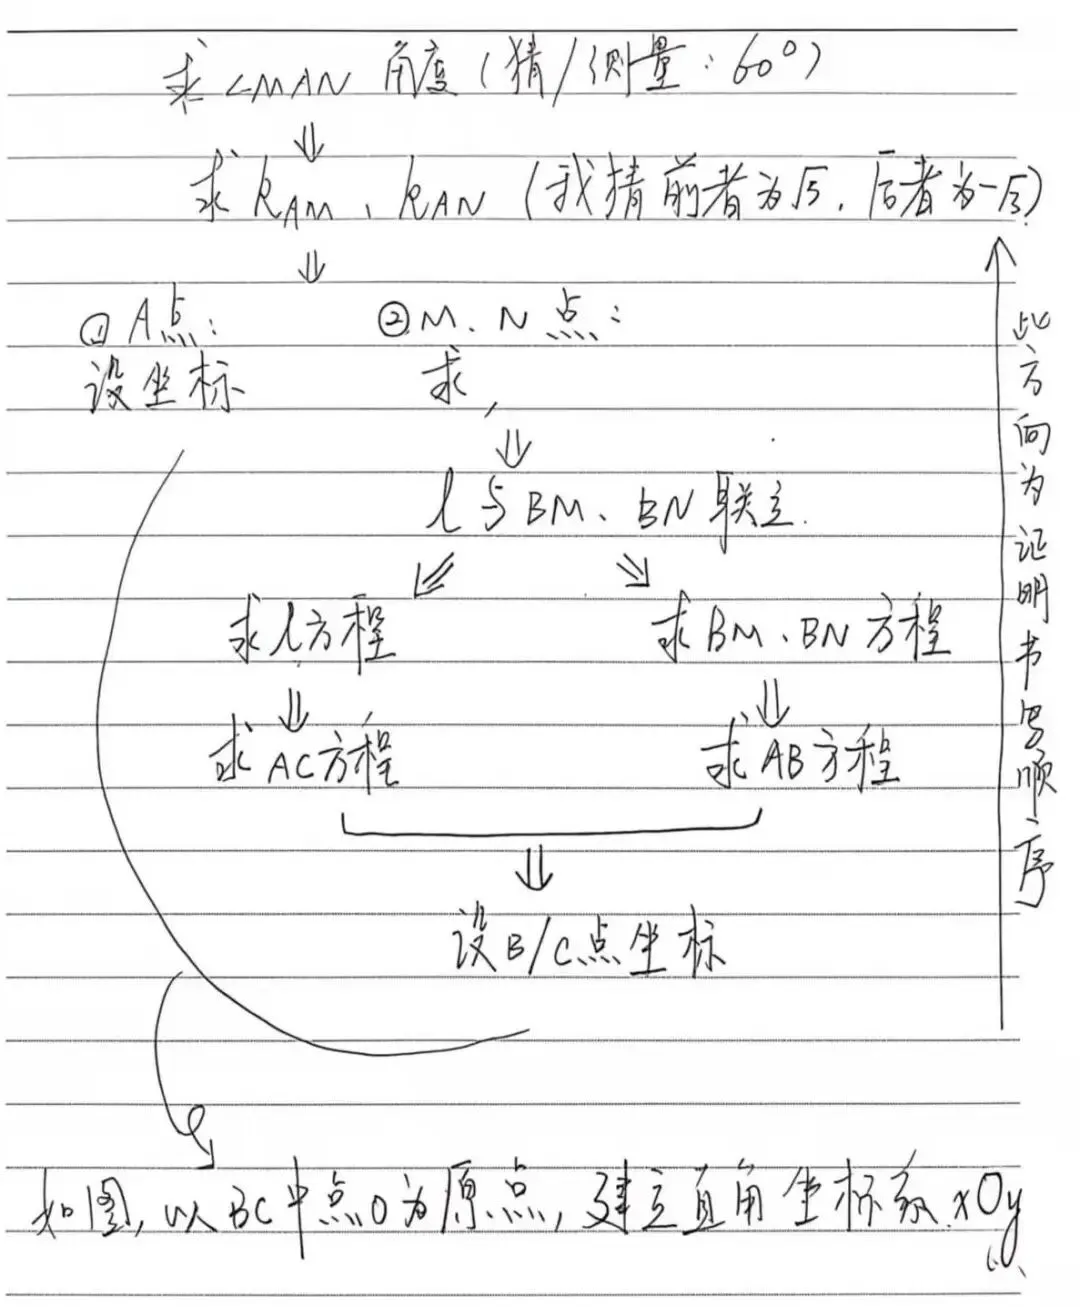 求∠MAN 角度(猜/测量:60°)
⇓
求 kAM、kAN (我猜前者为√3,后者为-√3)
⇓
①A点: ②M、N 点:
设坐标 求
⇓
l 与 BM、BN 联立.
⇙ ⇘
求l方程 求BM、BN方程
⇓ ⇓
求AC方程 求AB方程
⇓
设B/C点坐标
此方向为证明书写顺序
如图,以BC中点O为原点,建立直角坐标系xOy